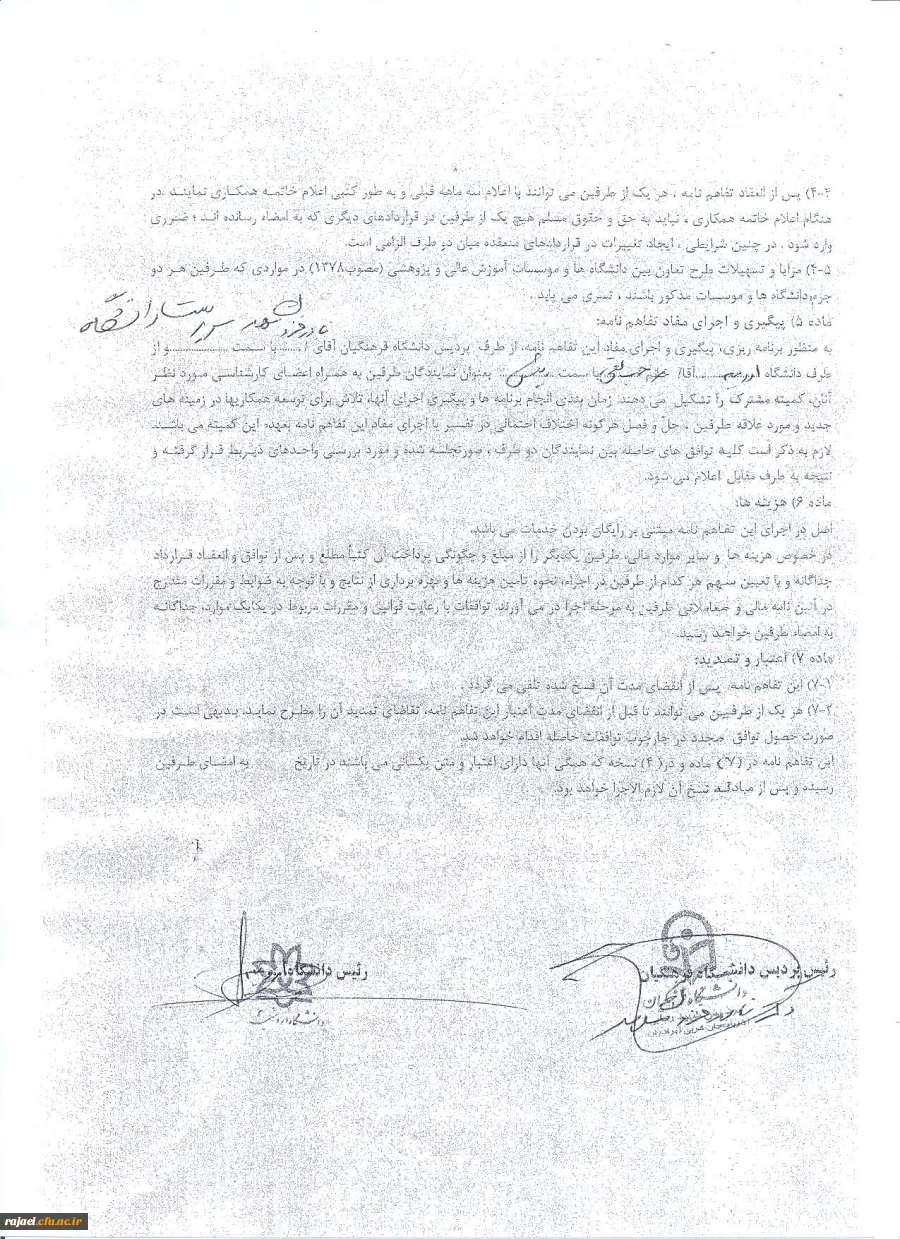 ۴-۴) پس از انعقاد تفاهم نامه ، هر یک از طرفین می توانند با اعلام سه ماهه قبلی و به طور کتبی اعلام خاتمه همکاری نمایند .در
هنگام اعلام خاتمه همکاری ، نباید به حق و حقوق مسلم هیچ یک از طرفین در قراردادهای دیگری که به امضاء رسانده اند ؛ ضرری
وارد شود . در چنین شرایطی ، ایجاد تغییرات در قراردادهای منعقده میان دو طرف الزامی است.
۴-۵) مزایا و تسهیلات طرح تعاون بین دانشگاه ها و موسسات آموزش عالی و پژوهشی (مصوب۱۳۷۸) در مواردی که طرفین هر دو
جزء دانشگاه ها و موسسات مذکور باشند ، تسری می یابد .
ماده ۵) پیگیری و اجرای مفاد تفاهم نامه:
به منظور برنامه ریزی، پیگیری و اجرای مفاد این تفاهم نامه، از طرف پردیس دانشگاه فرهنگیان آقای / ...... با سمت .................. و از
طرف دانشگاه ارومیه ......... آقا/ با سمت بعنوان نمایندگان طرفین به همراه اعضای کارشناسی مورد نظر
آنان، کمیته مشترک را تشکیل می دهند. زمان بندی انجام برنامه ها و پیگیری اجرای آنها، تلاش برای توسعه همکاریها در زمینه های
جدید و مورد علاقه طرفین ، حلّ و فصل هرگونه اختلاف احتمالی در تفسیر یا اجرای مفاد این تفاهم نامه بعهده این کمیته می باشند.
لازم به ذکر است کلیه توافق های حاصله بین نمایندگان دو طرف ، صورتجلسه شده و مورد بررسی واحدهای ذیربط قرار گرفته و
نتیجه به طرف مقابل اعلام می شود.
ماده ۶) هزینه ها:
اصل در اجرای این تفاهم نامه مبتنی بر رایگان بودن خدمات می باشد.
در خصوص هزینه ها و سایر موارد مالی، طرفین یکدیگر را از مبلغ و چگونگی پرداخت آن کتباً مطلع و پس از توافق و انعقاد قرارداد
جداگانه و با تعیین سهم هر کدام از طرفین در اجراء، نحوه تامین هزینه ها و بهره برداری از نتایج و با توجه به ضوابط و مقررات مندرج
در آئین نامه مالی و معاملاتی طرفین به مرحله اجرا در می آورند. توافقات با رعایت قوانین و مقررات مربوط در یکایک موارد، جداگانه
به امضاء طرفین خواهند رسید.
ماده ۷) اعتبار و تمدید:
۷-۱) این تفاهم نامه پس از انقضای مدت آن فسخ شده تلقی می گردد .
۷-۲) هر یک از طرفیین می توانند تا قبل از انقضای مدت اعتبار این تفاهم نامه، تقاضای تمدید آن را مطرح نمایند، بدیهی است در
صورت حصول توافق مجدد در چارچوب توافقات حاصله اقدام خواهد شد.
این تفاهم نامه در (۷) ماده و در( ۴) نسخه که همگی آنها دارای اعتبار و متن یکسانی می باشند در تاریخ به امضای طرفین
رسیده و پس از مبادله نسخ آن لازم الاجرا خواهد بود.
رئیس پردیس دانشگاه فرهنگیان
رئیس دانشگاه ارومیه
دانشگاه فرهنگیان
دانشگاه ارومیه
rajaei.cfu.ac.ir